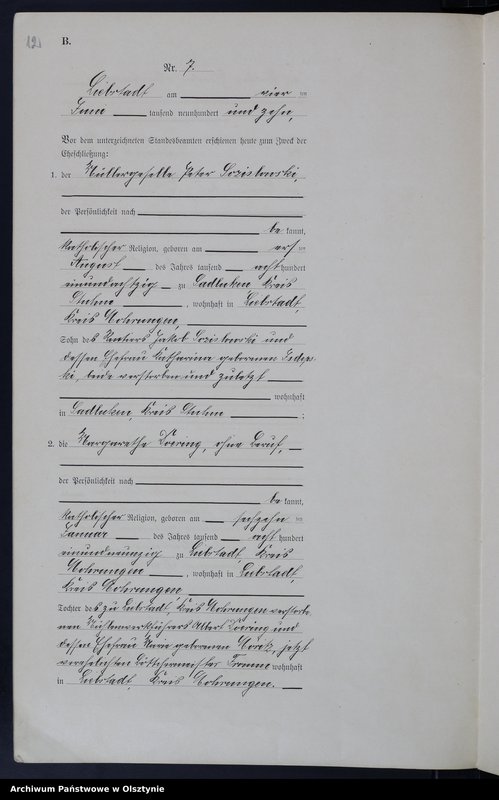 12
B.
Nr. 7.
Liebstadt am vier ten
Juni tausend neunhundert und zehn,
Vor dem unterzeichneten Standesbeamten erschienen heute zum Zweck der
Eheschließung:
1. der Müllergeselle Peter
der Persönlichkeit nach
be kannt,
katholischer Religion, geboren am ers ten
August des Jahres tausend acht hundert
einundachtzig zu Sadluken Kreis
Stuhm, wohnhaft in Liebstadt,
Kreis Mohrungen,
Sohn des Rentiers Jakob und
dessen Ehefrau Katharina geborenen
beide verstorben und zuletzt
wohnhaft
in Sadluken, Kreis Stuhm ;
2. die Margarethe Doering, ohne Beruf,
der Persönlichkeit nach
be kannt,
katholischer Religion, geboren am sechzehn ten
Januar des Jahres tausend acht hundert
einundneunzig zu Liebstadt, Kreis
Mohrungen, wohnhaft in Liebstadt,
Kreis Mohrungen
Tochter des zu Liebstadt, Kreis Mohrungen verstorbe-
nen Albert Doering und
dessen Ehefrau geborenen jetzt
verehelichten Böttchermeister wohnhaft
in Liebstadt, Kreis Mohrungen.
Archiwum Państwowe w Olsztynie